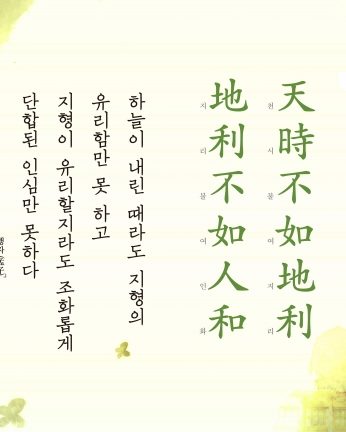 天時不如地利
천시불여지리
地利不如人和
지리불여인화
하늘이 내린 때라도 지형의
유리함만 못 하고
지형이 유리할지라도 조화롭게
단합된 인심만 못하다